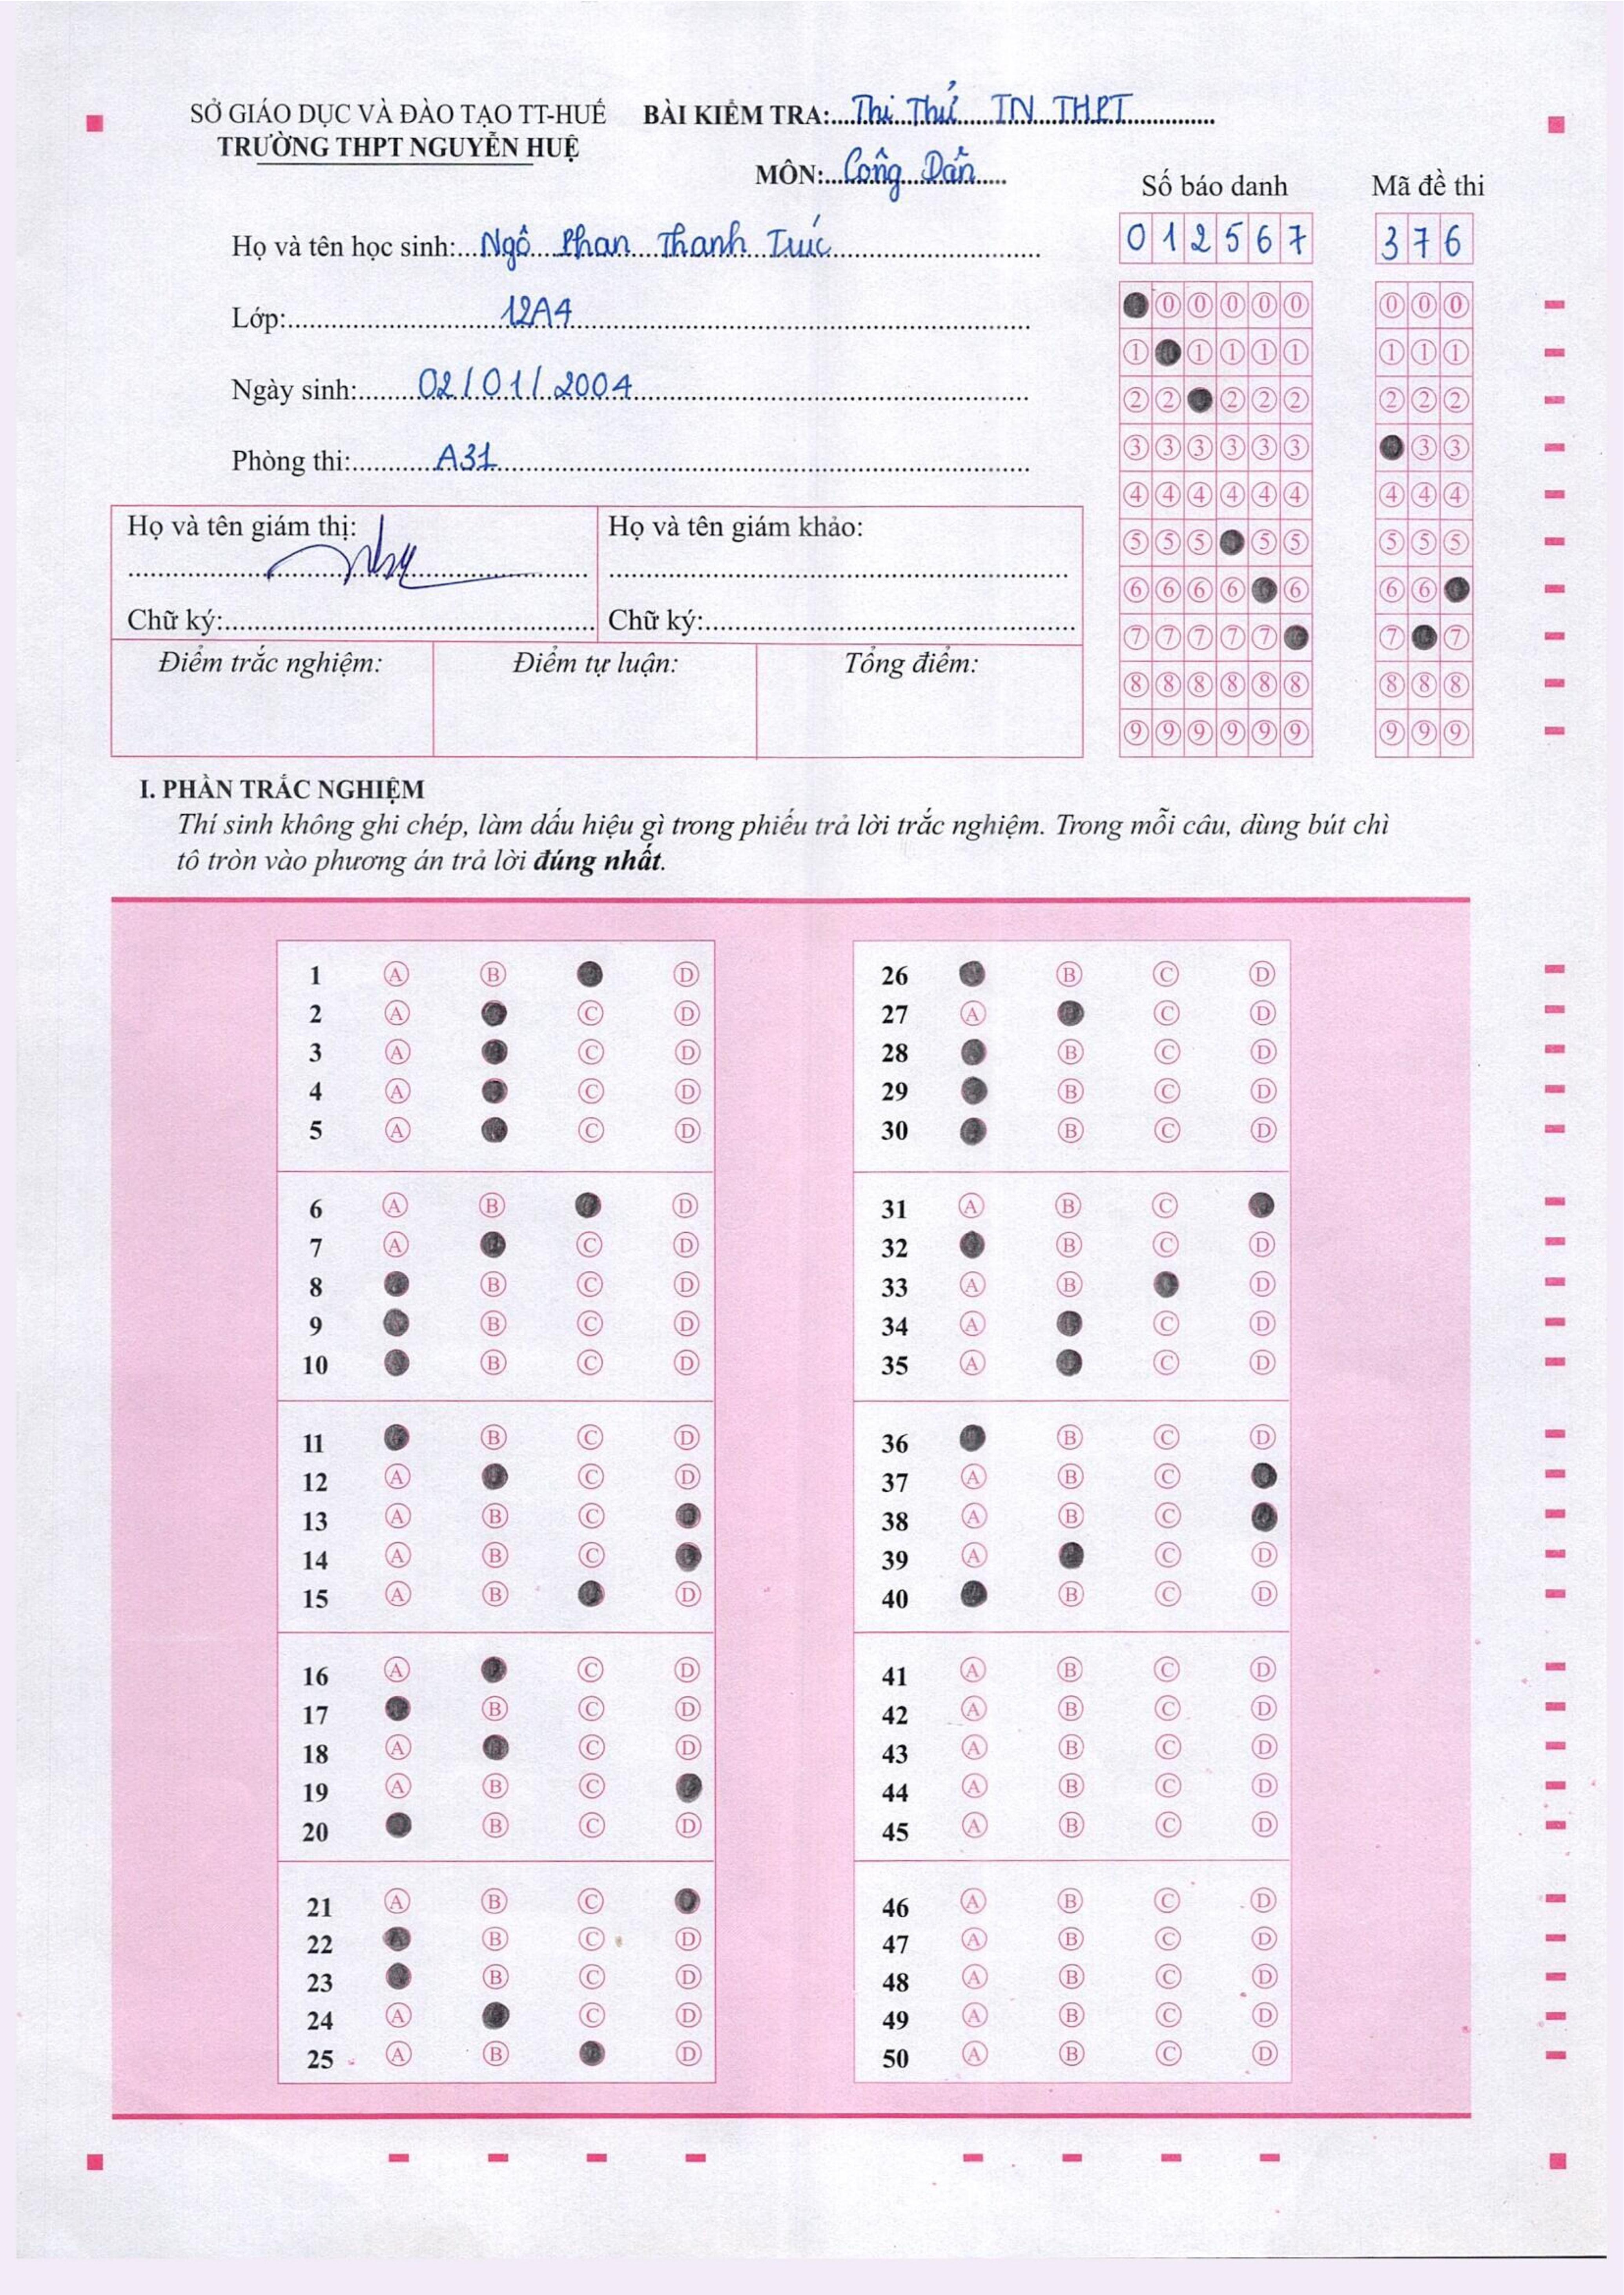 SỞ GIÁO DỤC VÀ ĐÀO TẠO TT-HUẾ
TRƯỜNG THPT NGUYỄN HUỆ
BÀI KIỂM TRA: Thi Thử TN THPT
MÔN: Công Dân
Số báo danh
012567
Mã đề thi
376
Họ và tên học sinh: Ngô Phan Thanh Trúc
Lớp: 12A4
Ngày sinh: 02/01/2004
Phòng thi: A31
0 0 0 0 0 0 0 0
1 1 1 1 1 1 1 1
2 2 2 2 2 2 2 2
3 3 3 3 3 3 3 3
4 4 4 4 4 4 4 4 4
5 5 5 5 5 5 5 5
6 6 6 6 6 6 6
7 7 7 7 7 7 7
8 8 8 8 8 8 8 8 8
9 9 9 9 9 9 9 9 9
Họ và tên giám thị:
Chữ ký:
Họ và tên giám khảo:
Chữ ký:
Điểm trắc nghiệm:
Điểm tự luận:
Tổng điểm:
I. PHẦN TRẮC NGHIỆM
Thí sinh không ghi chép, làm dấu hiệu gì trong phiếu trả lời trắc nghiệm. Trong mỗi câu, dùng bút chì
tô tròn vào phương án trả lời đúng nhất.
1 A B D
2 A C D
3 A C D
4 A C D
5 A C D
6 A B D
7 A C D
8 B C D
9 B C D
10 B C D
11 B C D
12 A C D
13 A B C
14 A B C
15 A B D
16 A C D
17 B C D
18 A C D
19 A B C
20 B C D
21 A B C
22 B C D
23 B C D
24 A C D
25 A B D
26 B C D
27 A C D
28 B C D
29 B C D
30 B C D
31 A B C
32 B C D
33 A B D
34 A C D
35 A C D
36 B C D
37 A B C
38 A B C
39 A C D
40 B C D
41 A B C D
42 A B C D
43 A B C D
44 A B C D
45 A B C D
46 A B C D
47 A B C D
48 A B C D
49 A B C D
50 A B C D